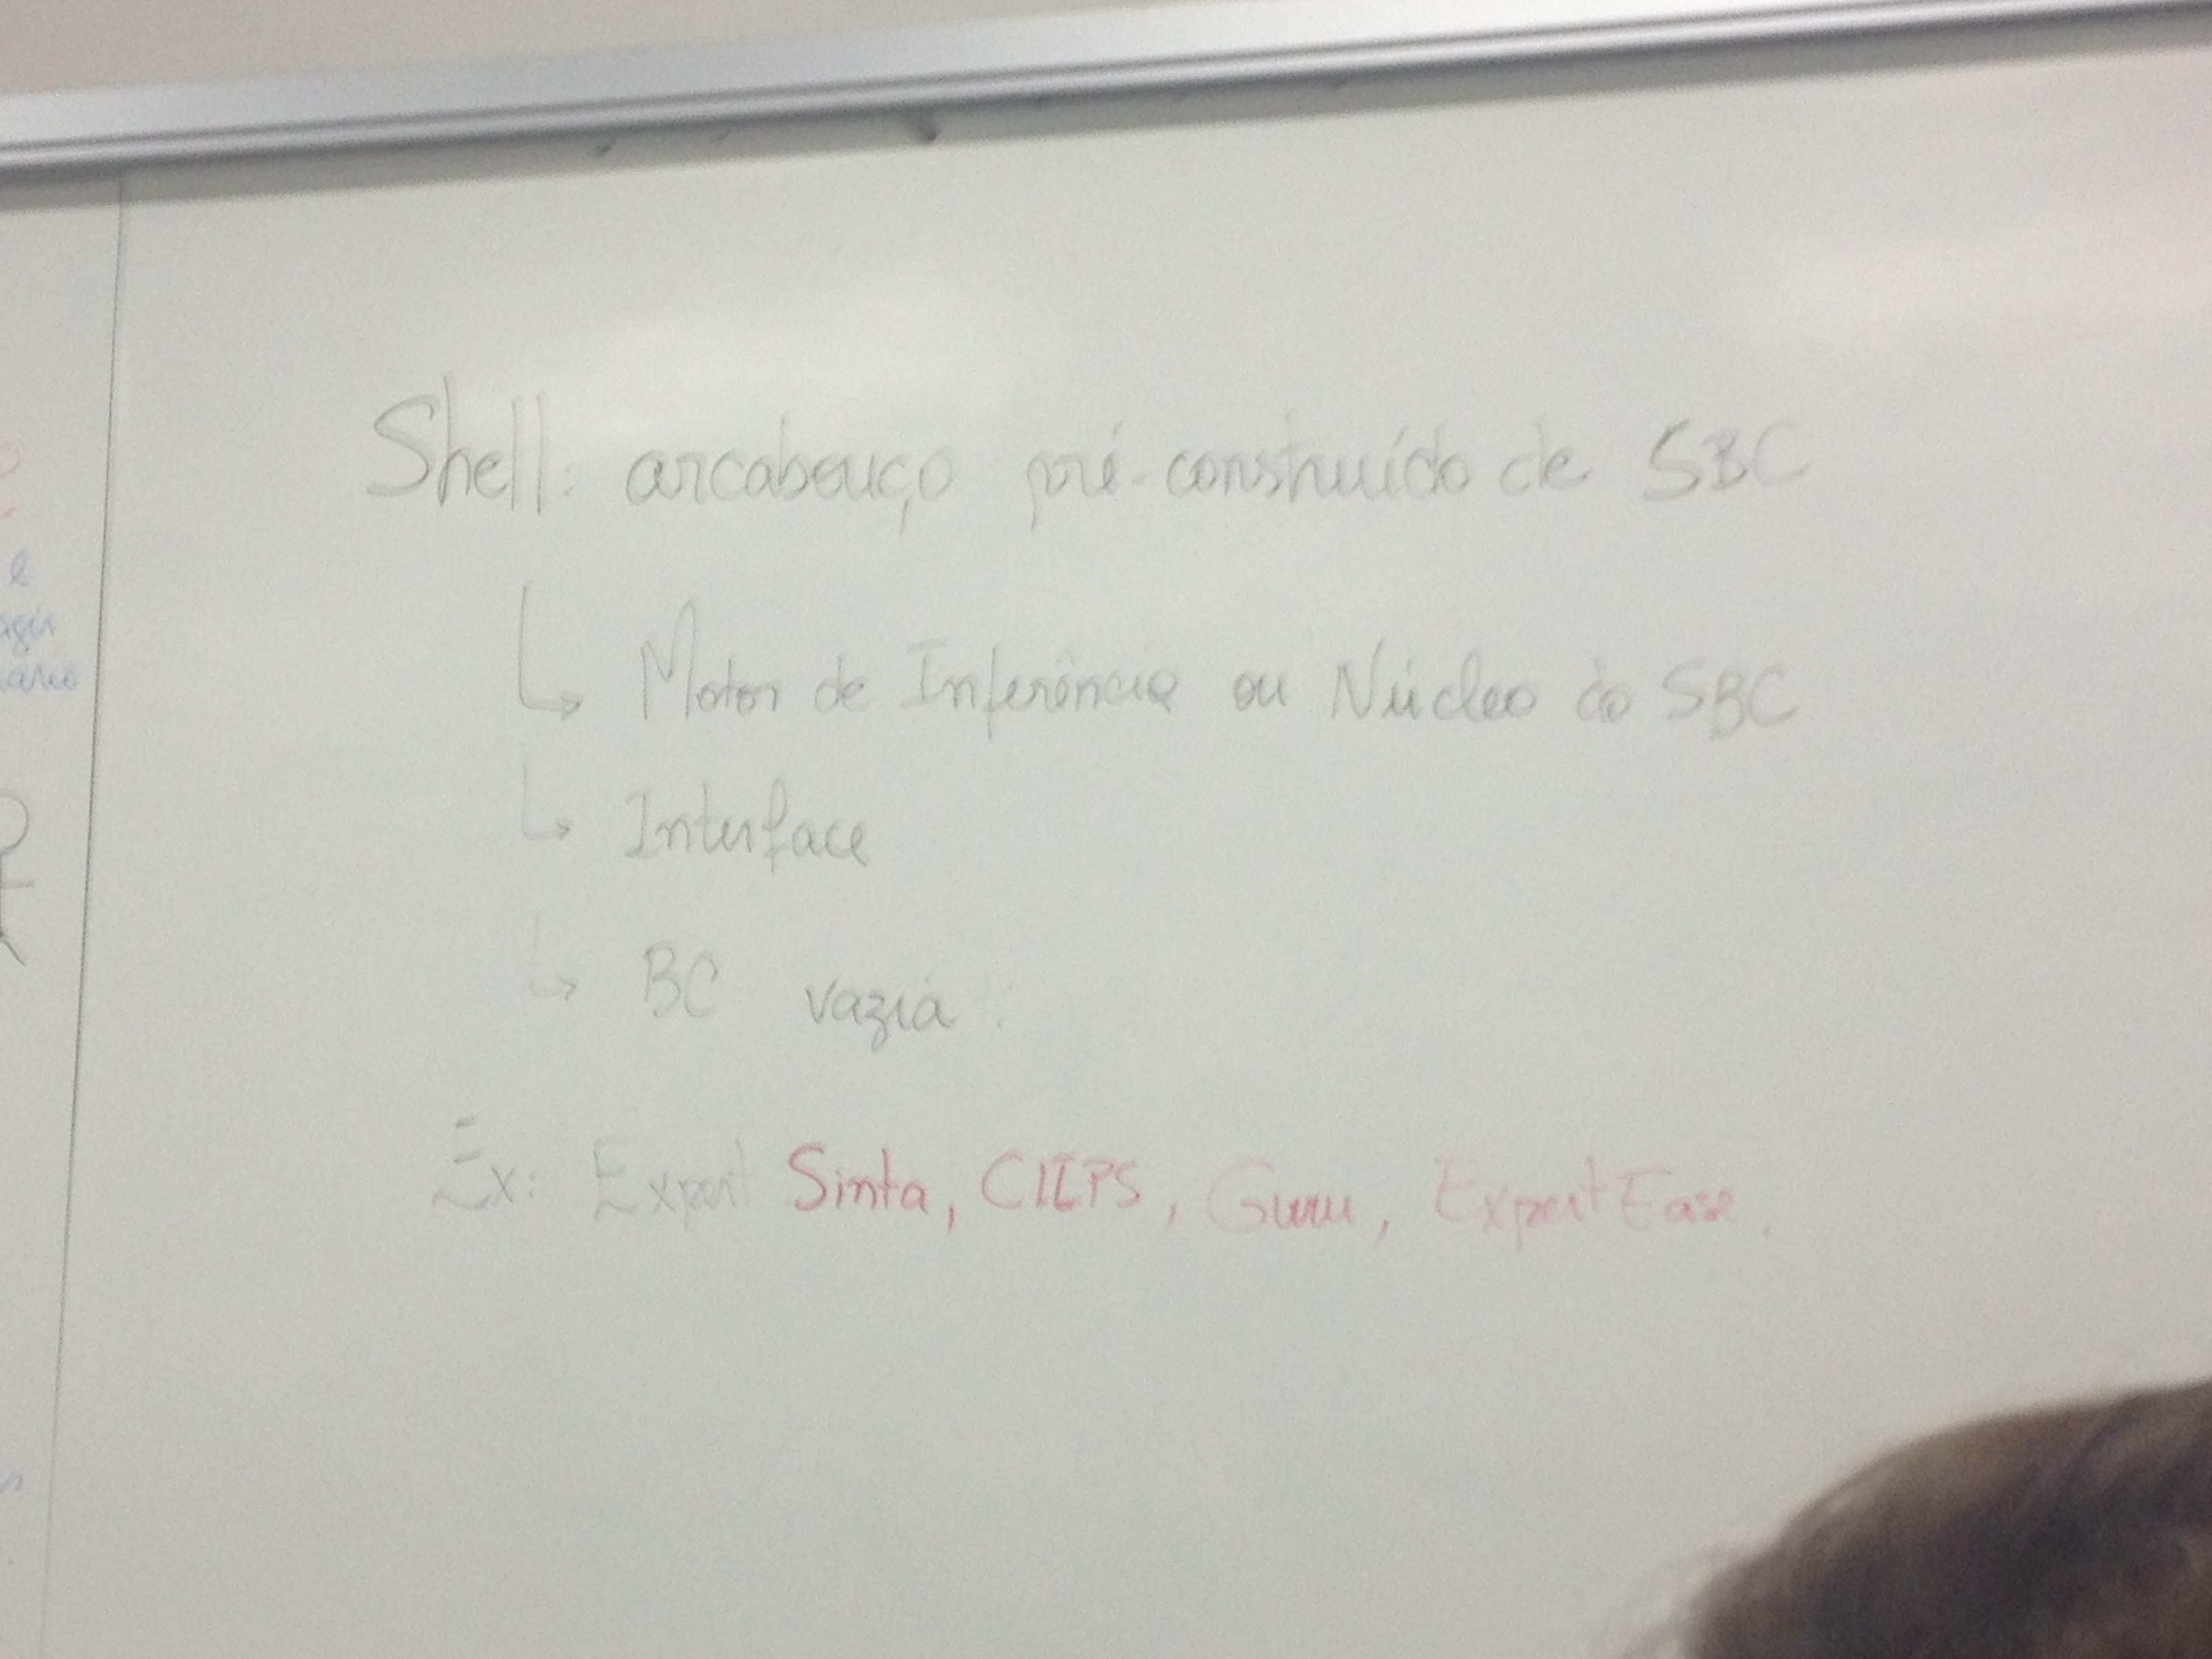 Shell: arcabouço pré-construído de SBC
↳ Motor de Inferência ou Núcleo do SBC
↳ Interface
↳ BC vazia.
Ex: Expert Sinta, CLIPS, Guru, ExpertEase.